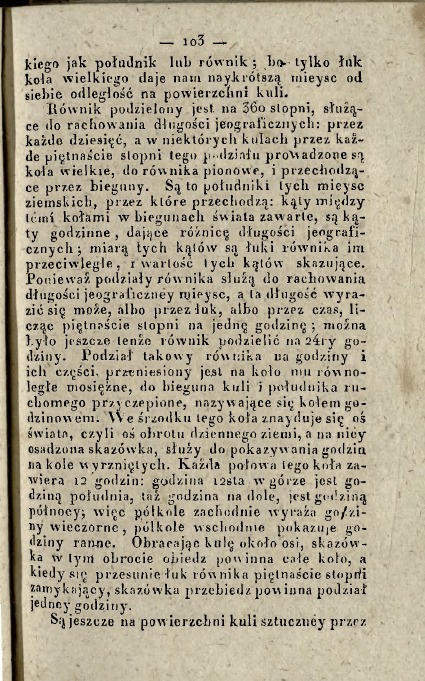 — 103 —
kiego jak południk lub równik; bo tylko łuk
koła wielkiego daje nam naykrótszą mieysc od
siebie odległość na powierzchni kuli.
Równik podzielony jest na 360 stopni, służą-
ce do rachowania długości jeograficznych: przez
każde dziesięć, a w niektórych kulach przez każ-
de piętnaście stopni tego podziału prowadzone są
koła wielkie, do równika pionowe, i przechodzą-
ce przez bieguny. Są to południki tych mieysc
ziemskich, przez które przechodzą: kąty między
témi kołami w biegunach świata zawarte, są ką-
ty godzinne, dające różnicę długości jeografi-
cznych; miarą tych kątów są łuki równika im
przeciwległe, i wartość tych kątów skazujące.
Ponieważ podziały równika służą do rachowania
długości jeograficzney mieysc, a ta długość wyra-
zić się może, albo przez łuk, albo przez czas, li-
cząc piętnaście stopni na jednę godzinę; można
było jeszcze tenże równik podzielić na 24ry go-
dziny. Podział takowy równika na godziny i
ich części, przeniesiony jest na koło mu równo-
ległe mosiężne, do bieguna kuli i południka ru-
chomego przyczepione, nazywające się kołem go-
dzinowém. We śrzodku tego koła znayduje się oś
świata, czyli oś obrotu dziennego ziemi, a na niey
osadzona skazówka, służy do pokazywania godzin
na kole wyrzniętych. Każda połowa tego koła za-
wiera 12 godzin: godzina 12sta w górze jest go-
dziną południa, taż godzina na dole, jest godziną
północy; więc półkole zachodnie wyraża godzi-
ny wieczorne, półkole wschodnie pokazuje go-
dziny ranne. Obracając kulę około osi, skazów-
ka w tym obrocie obiedz powinna całe koło, a
kiedy się przesunie łuk równika piętnaście stopni
zamykający, skazówka przebiedz powinna podział
jedney godziny.
Są jeszcze na powierzchni kuli sztuczney przez